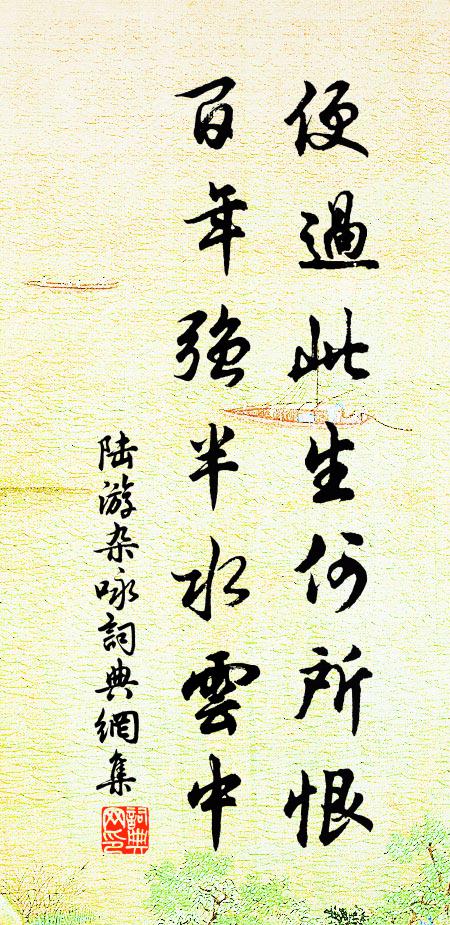 便過此生何所恨
百年強半水雲中
陆游杂咏詞典網集
詞典网印